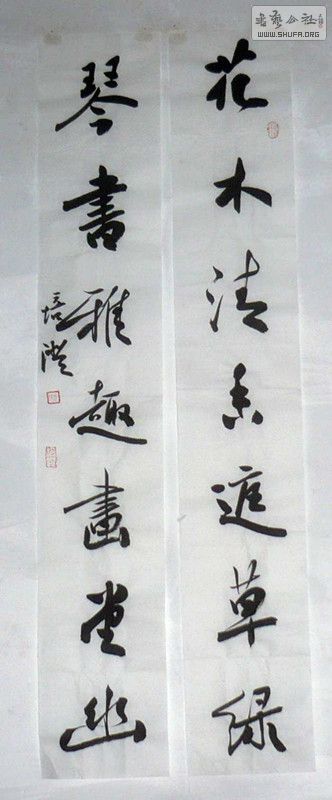 書藝公社
WWW.SHUFA.ORG
花木清香庭草绿
琴書雅趣畫堂幽
培